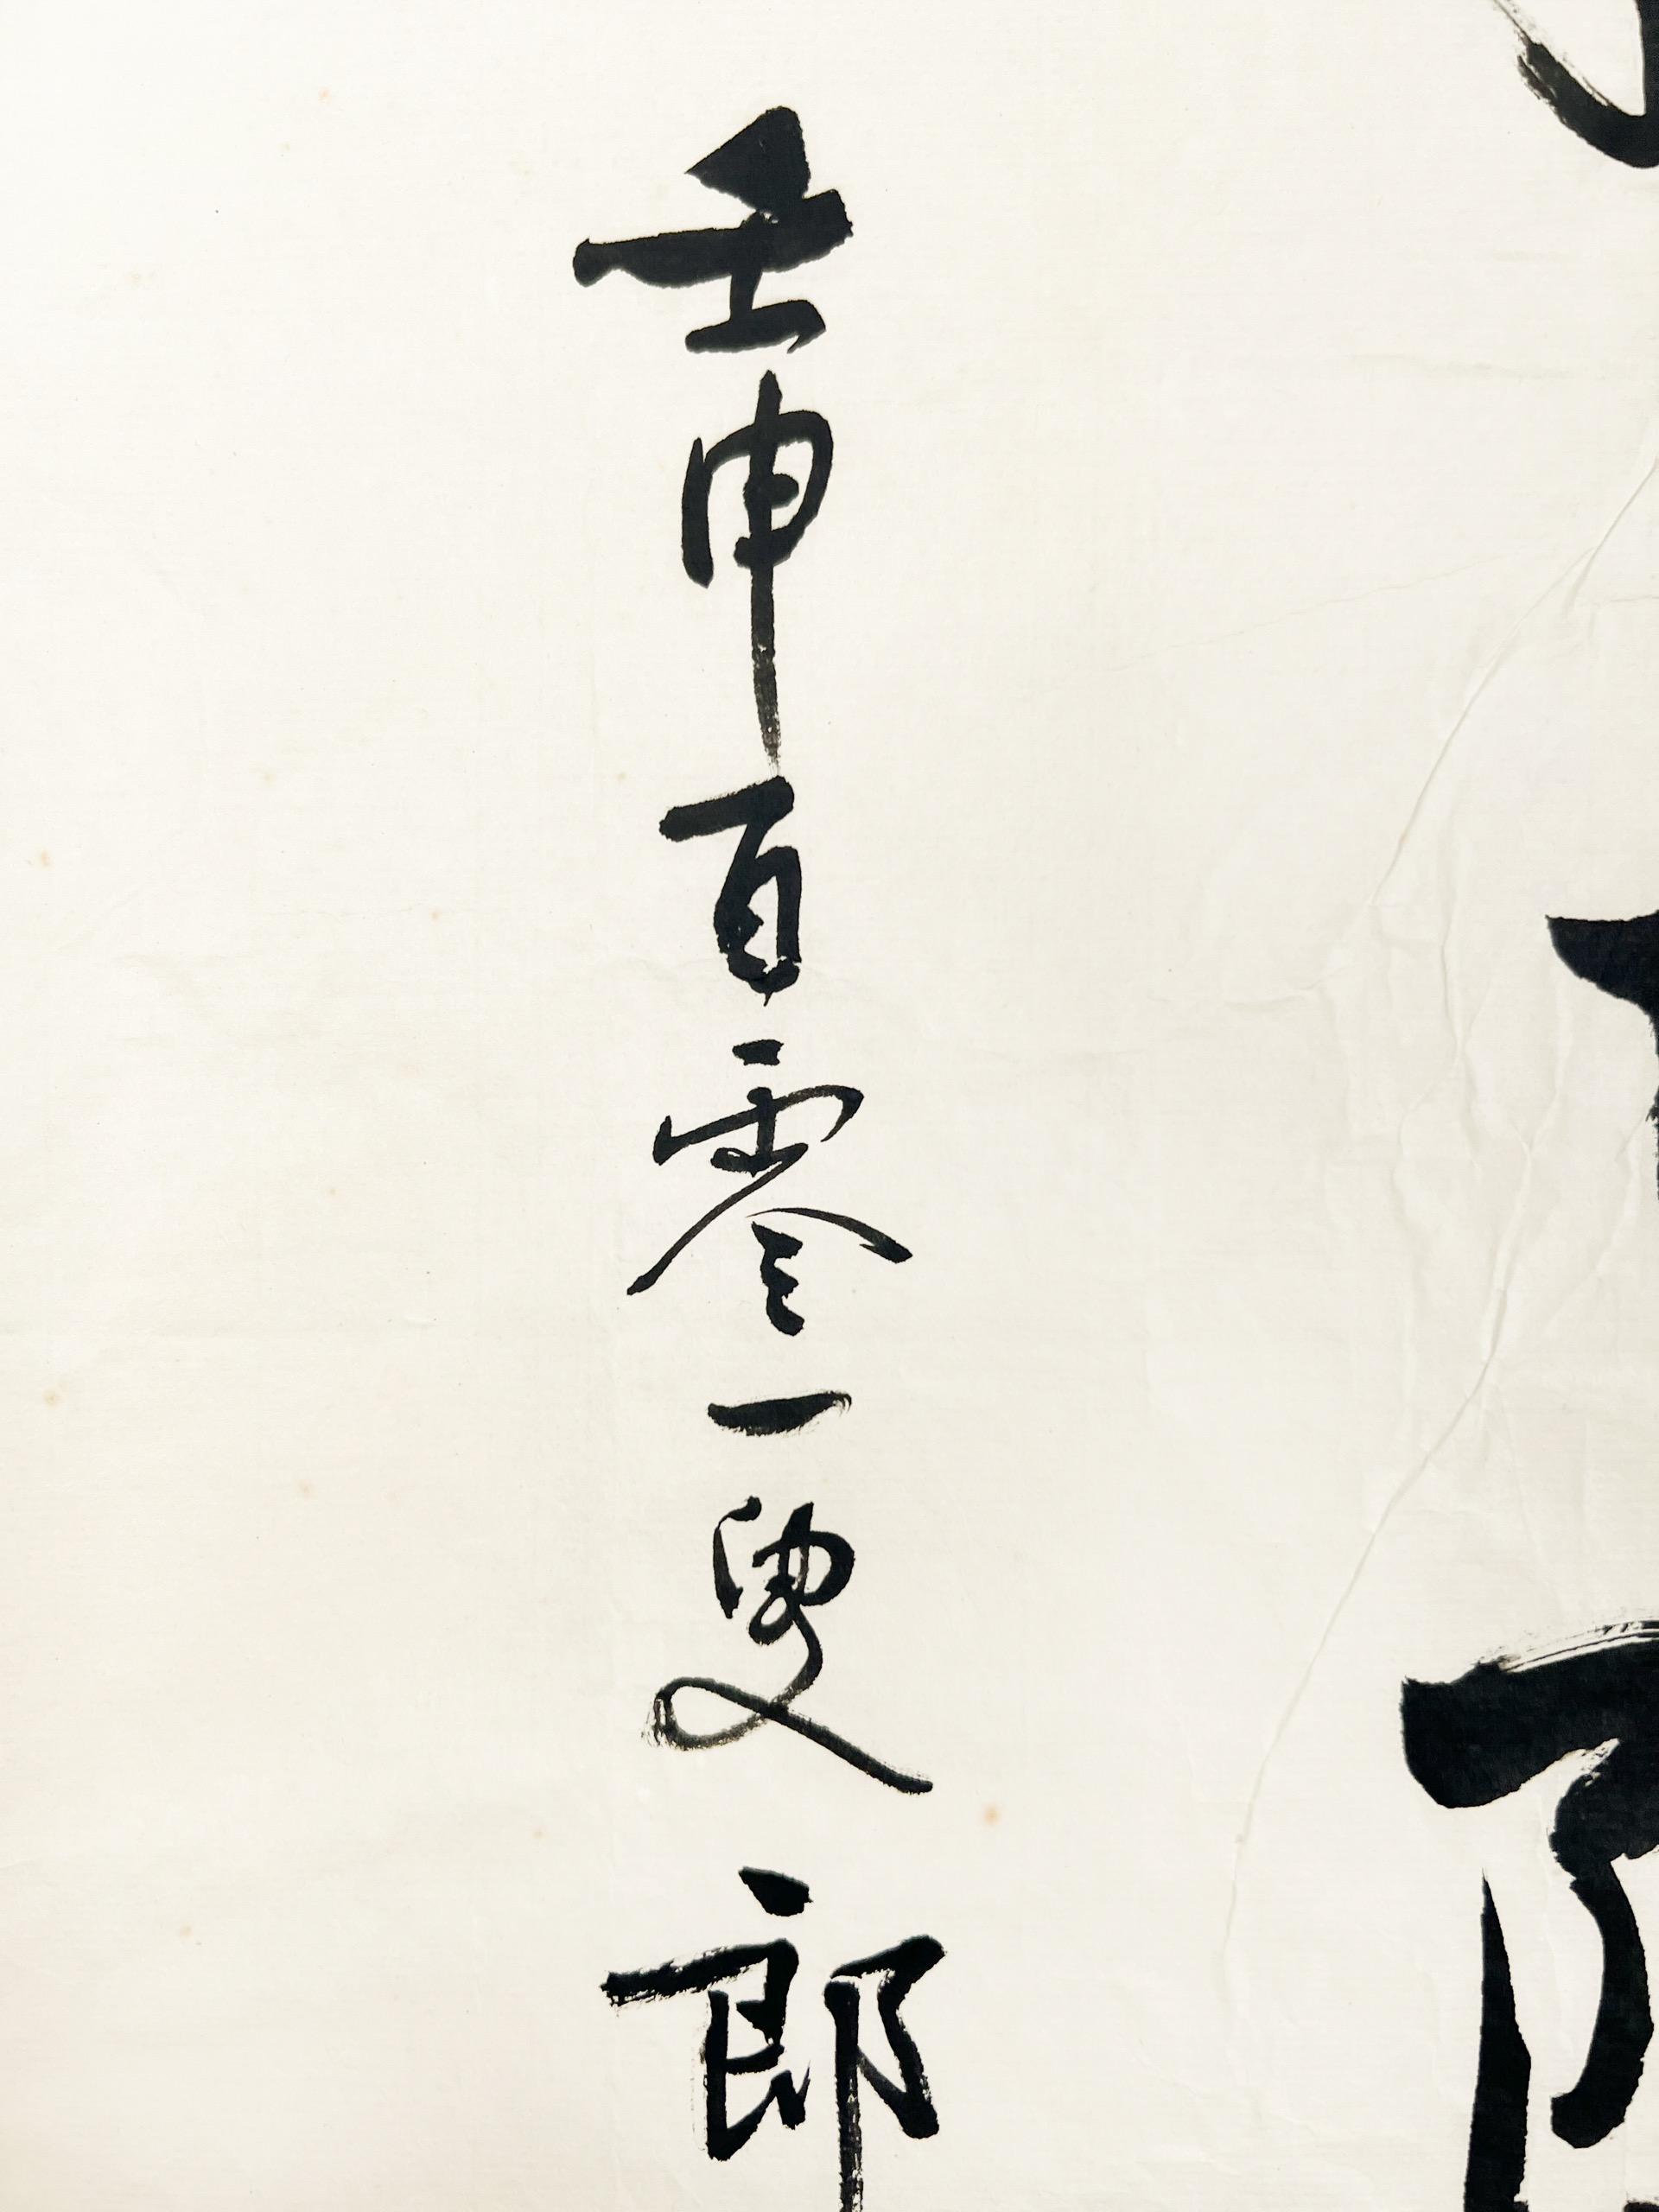 壬申百零一叟郎